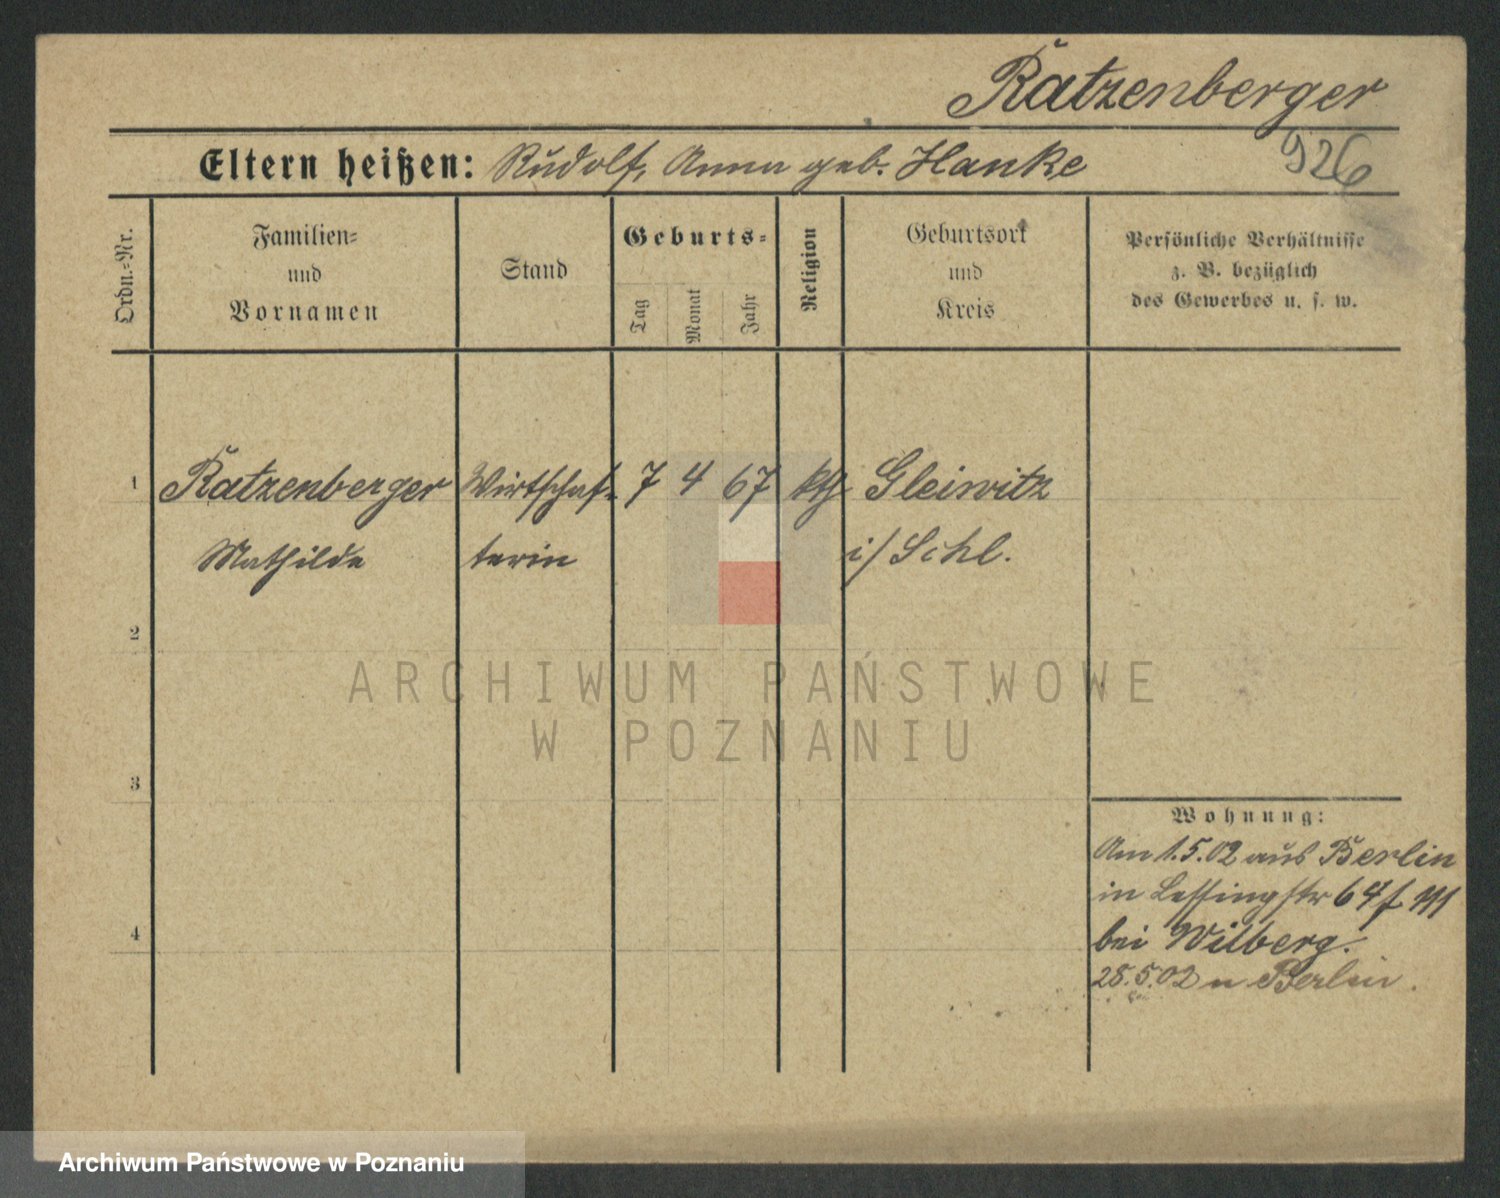 Ratzenberger
926
Eltern heißen: Rudolf, Anna geb. Hanke
Ordn.-Nr.
Familien-
und
Vornamen
Stand
Geburts-
Tag
Monat
Jahr
Religion
Geburtsort
und
Kreis
Persönliche Verhältnisse
z. B. bezüglich
des Gewerbes u. s. w.
1 Ratzenberger Wirtschaf- 7 4 67 kth Gleiwitz
Mathilde terin i/ Schl.
2
ARCHIWUM PAŃSTWOWE
W POZNANIU
3
Wohnung:
Am 1.5.02 aus Berlin
in Lessingstr 64f III
4
bei Wilberg.
28.5.02 n Berlin.
Archiwum Państwowe w Poznaniu